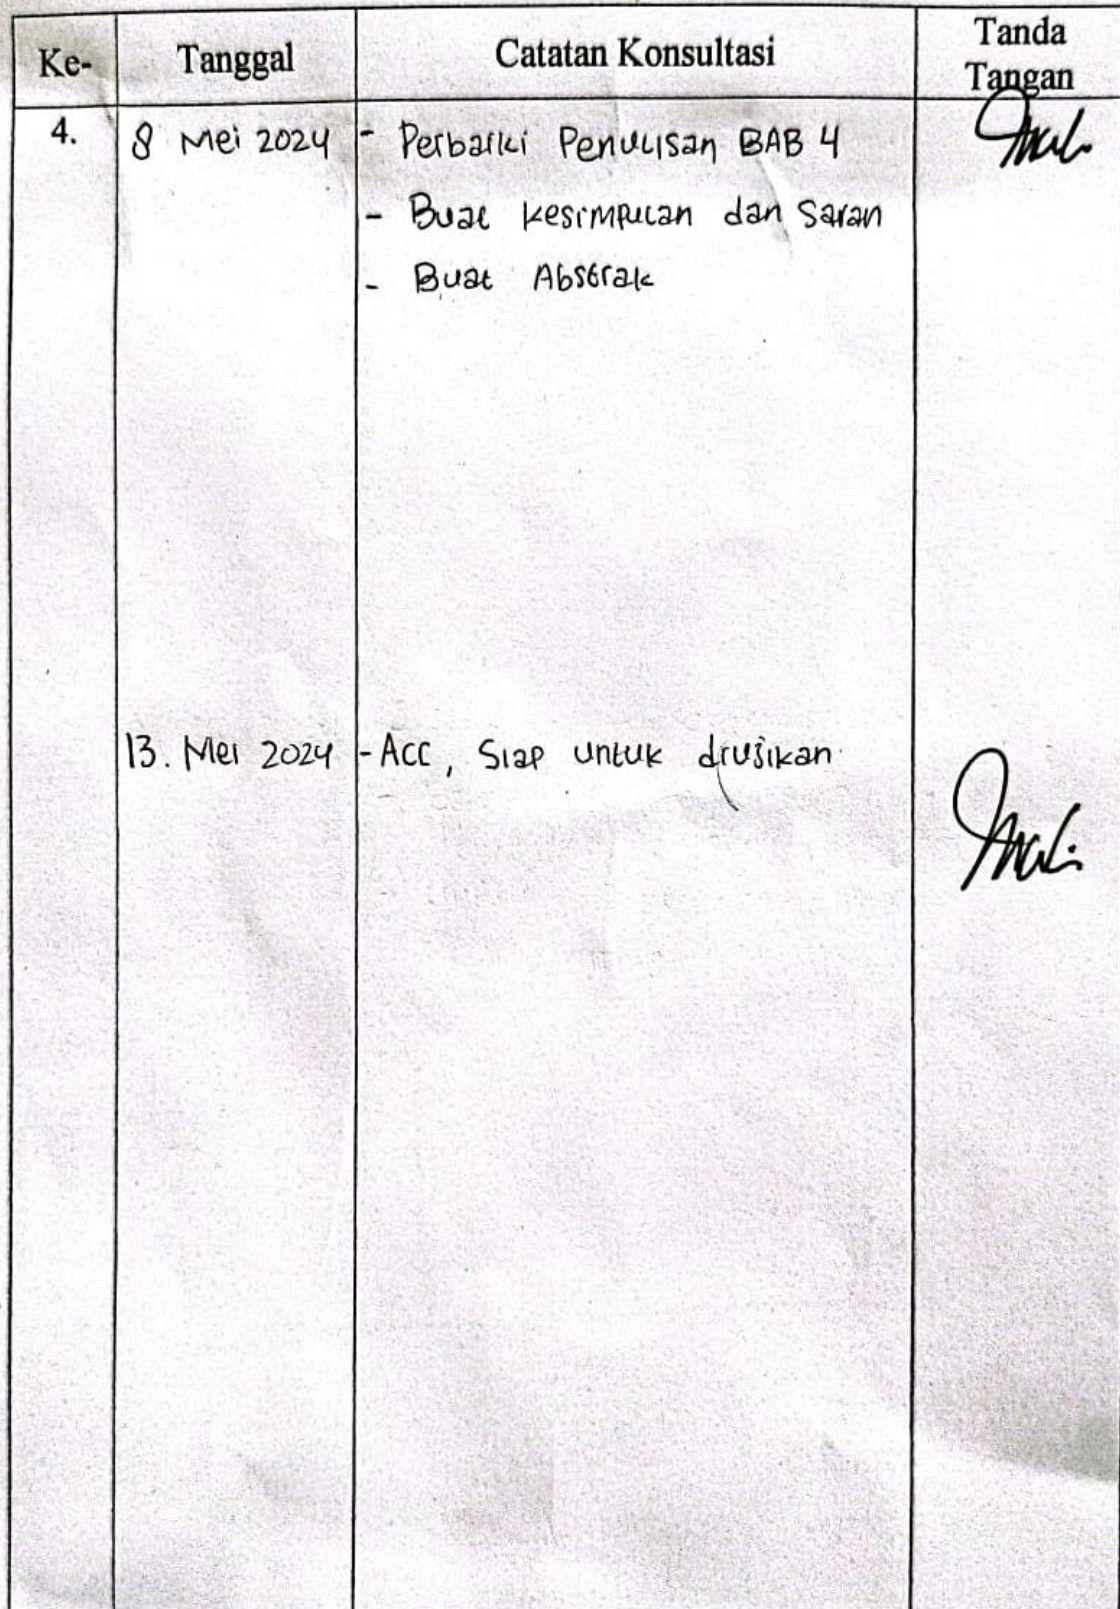 Ke- Tanggal Catatan Konsultasi Tanda Tangan
4. 8 Mei 2024 - Perbaiki Penulisan BAB 4
- Buat Kesimpulan dan Saran
- Buat Abstrak
13. Mei 2024 - Acc, Siap untuk diujikan